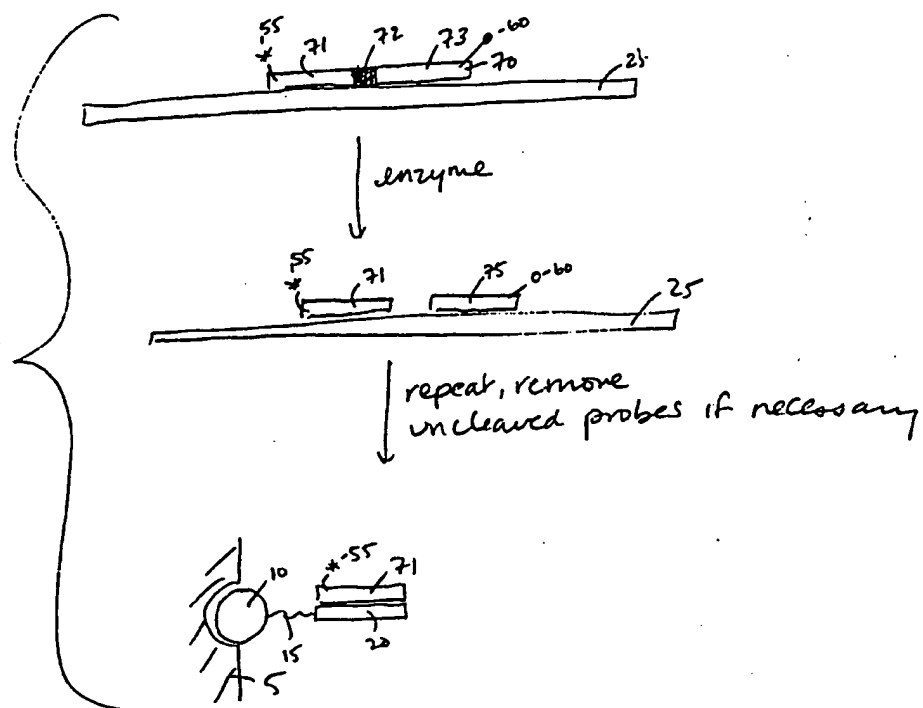 *55 71 72 73 -60
70 25
enzyme
*55 71 75 0-60 25
repeat, remove
uncleaved probes if necessary
10 *-55 71
15 20
5